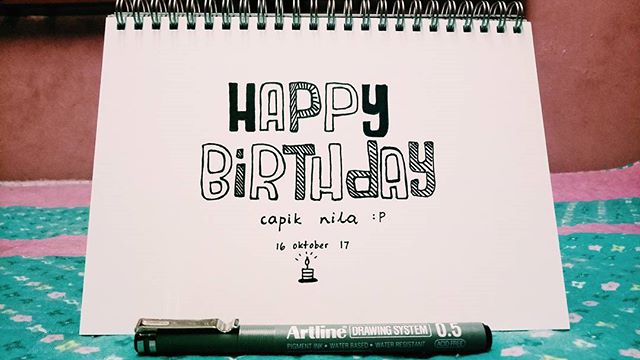 HAPPY
BiRTHdAY
capik nila :P
16 oktober 17
Artline DRAWING SYSTEM 0.5
PIGMENT INK • WATER BASED • WATER RESISTANT ACID FREE